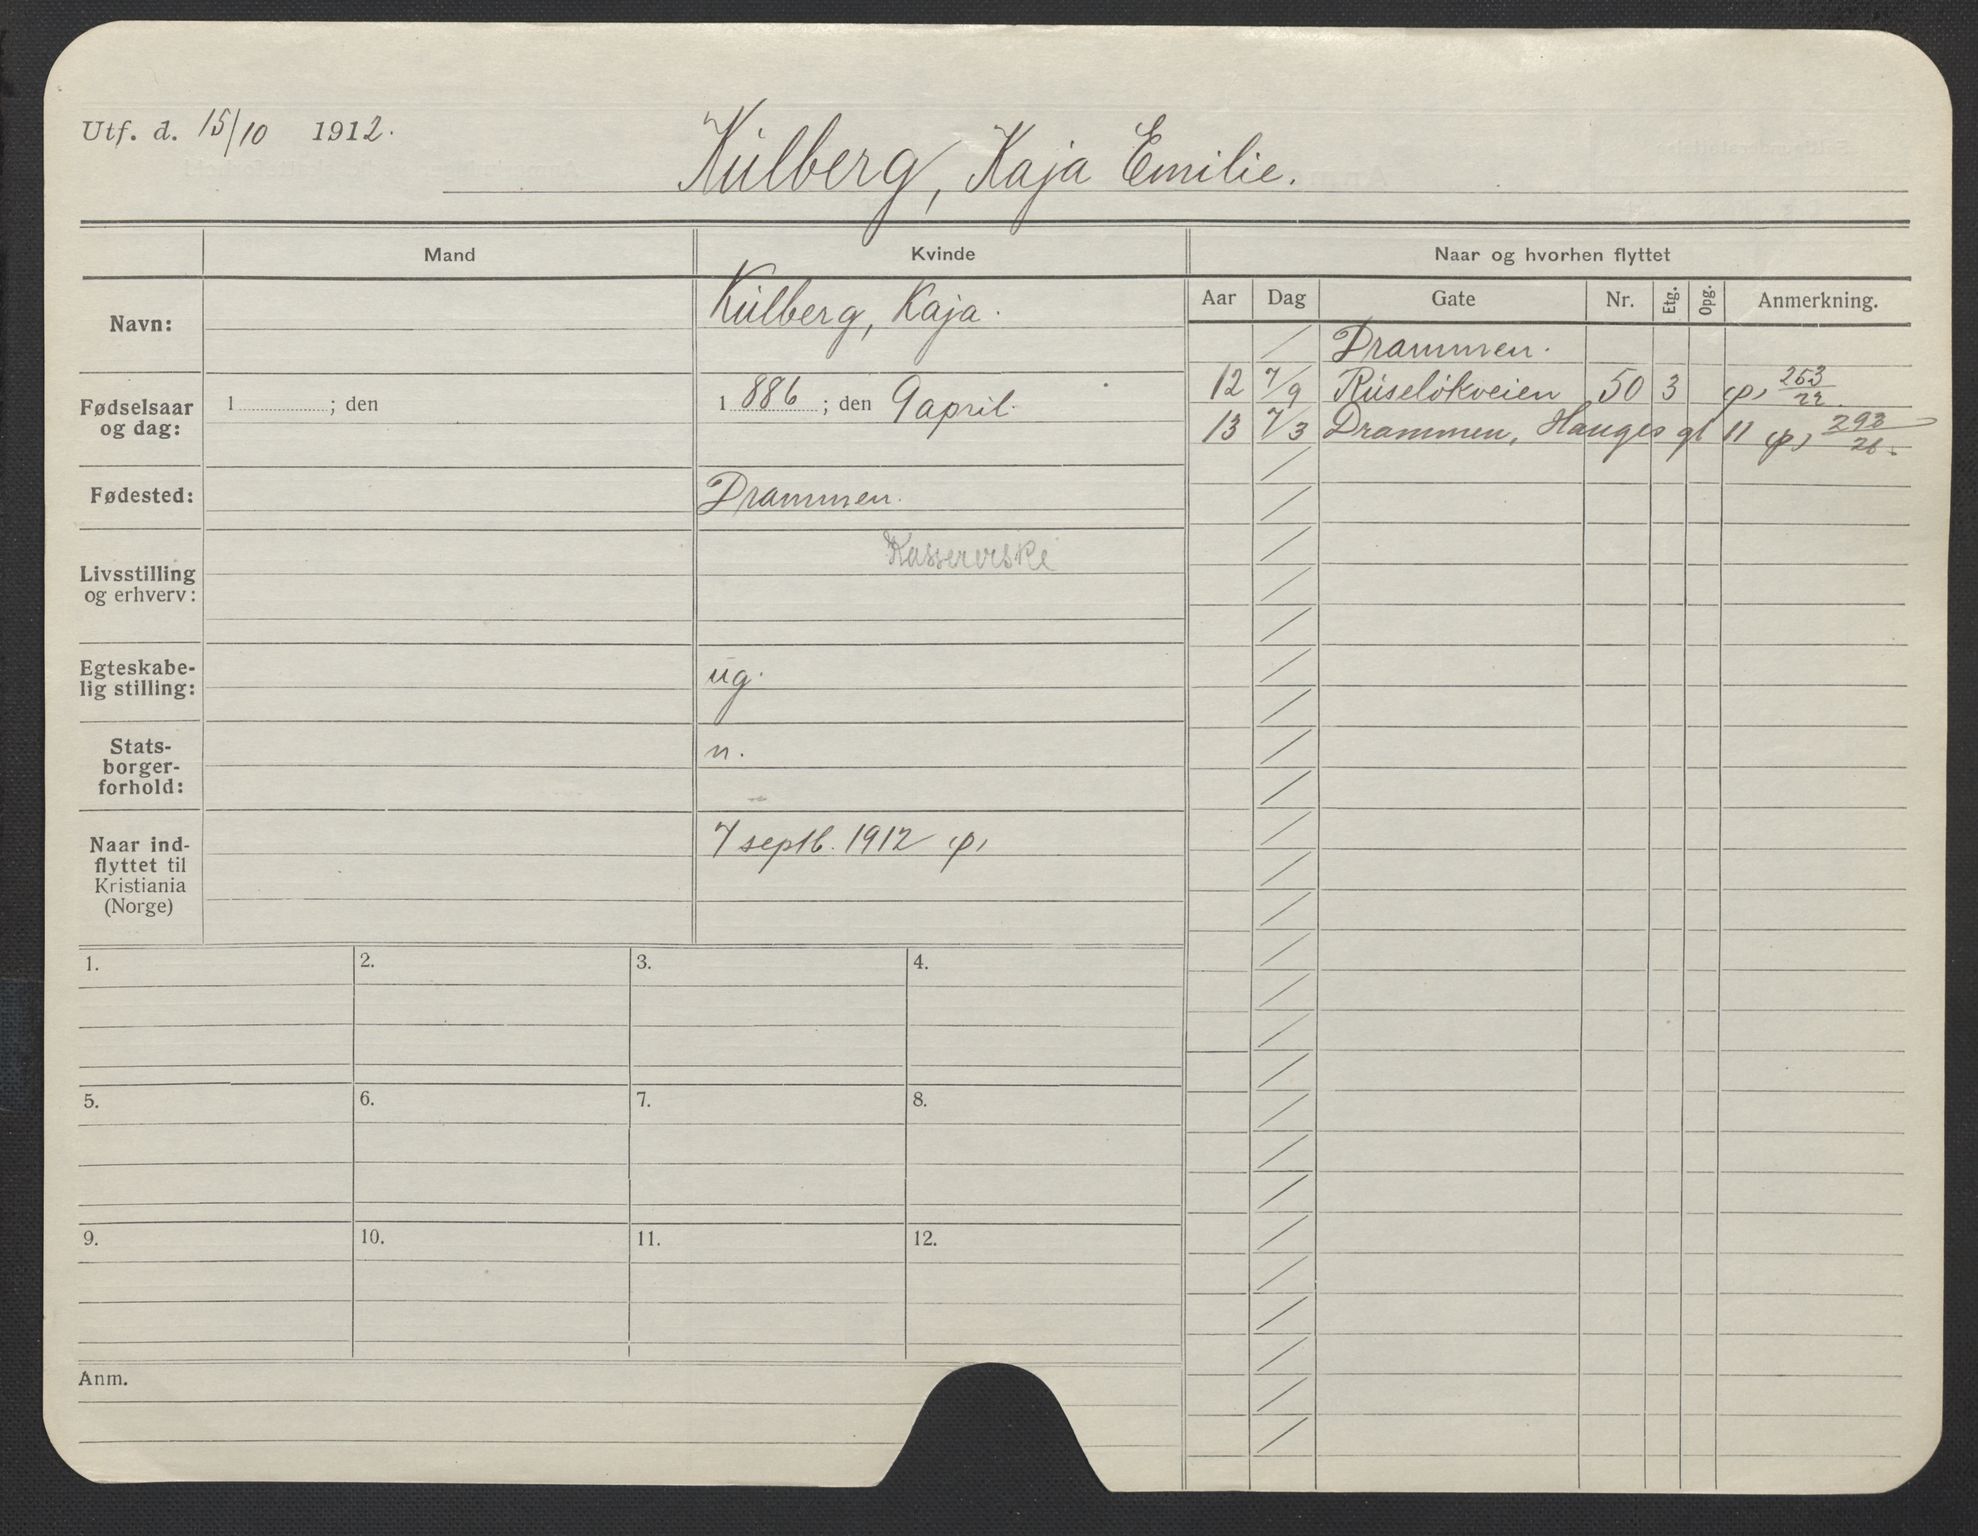 Utf. d. 15/10 1912.
Kulberg, Kaja Emilie.
Mand
Kvinde
Naar og hvorhen flyttet
Aar Dag Gate Nr. Etg. Opg. Anmerkning.
Navn:
Kulberg, Kaja.
Fødselsaar og dag:
1 ; den
1 886 ; den 9 april.
Fødested:
Drammen.
Livsstilling og erhverv:
Kassererske
Egteskabe-
lig stilling:
ug.
Stats-
borger-
forhold:
n.
Naar ind-
flyttet til
Kristiania
(Norge)
7 septb. 1912
/ Drammen.
12 7/9 Ruseløkveien 50 3 253/22
13 7/3 Drammen, Hauges gt 11 293/26.
1. 2. 3. 4.
5. 6. 7. 8.
9. 10. 11. 12.
Anm.